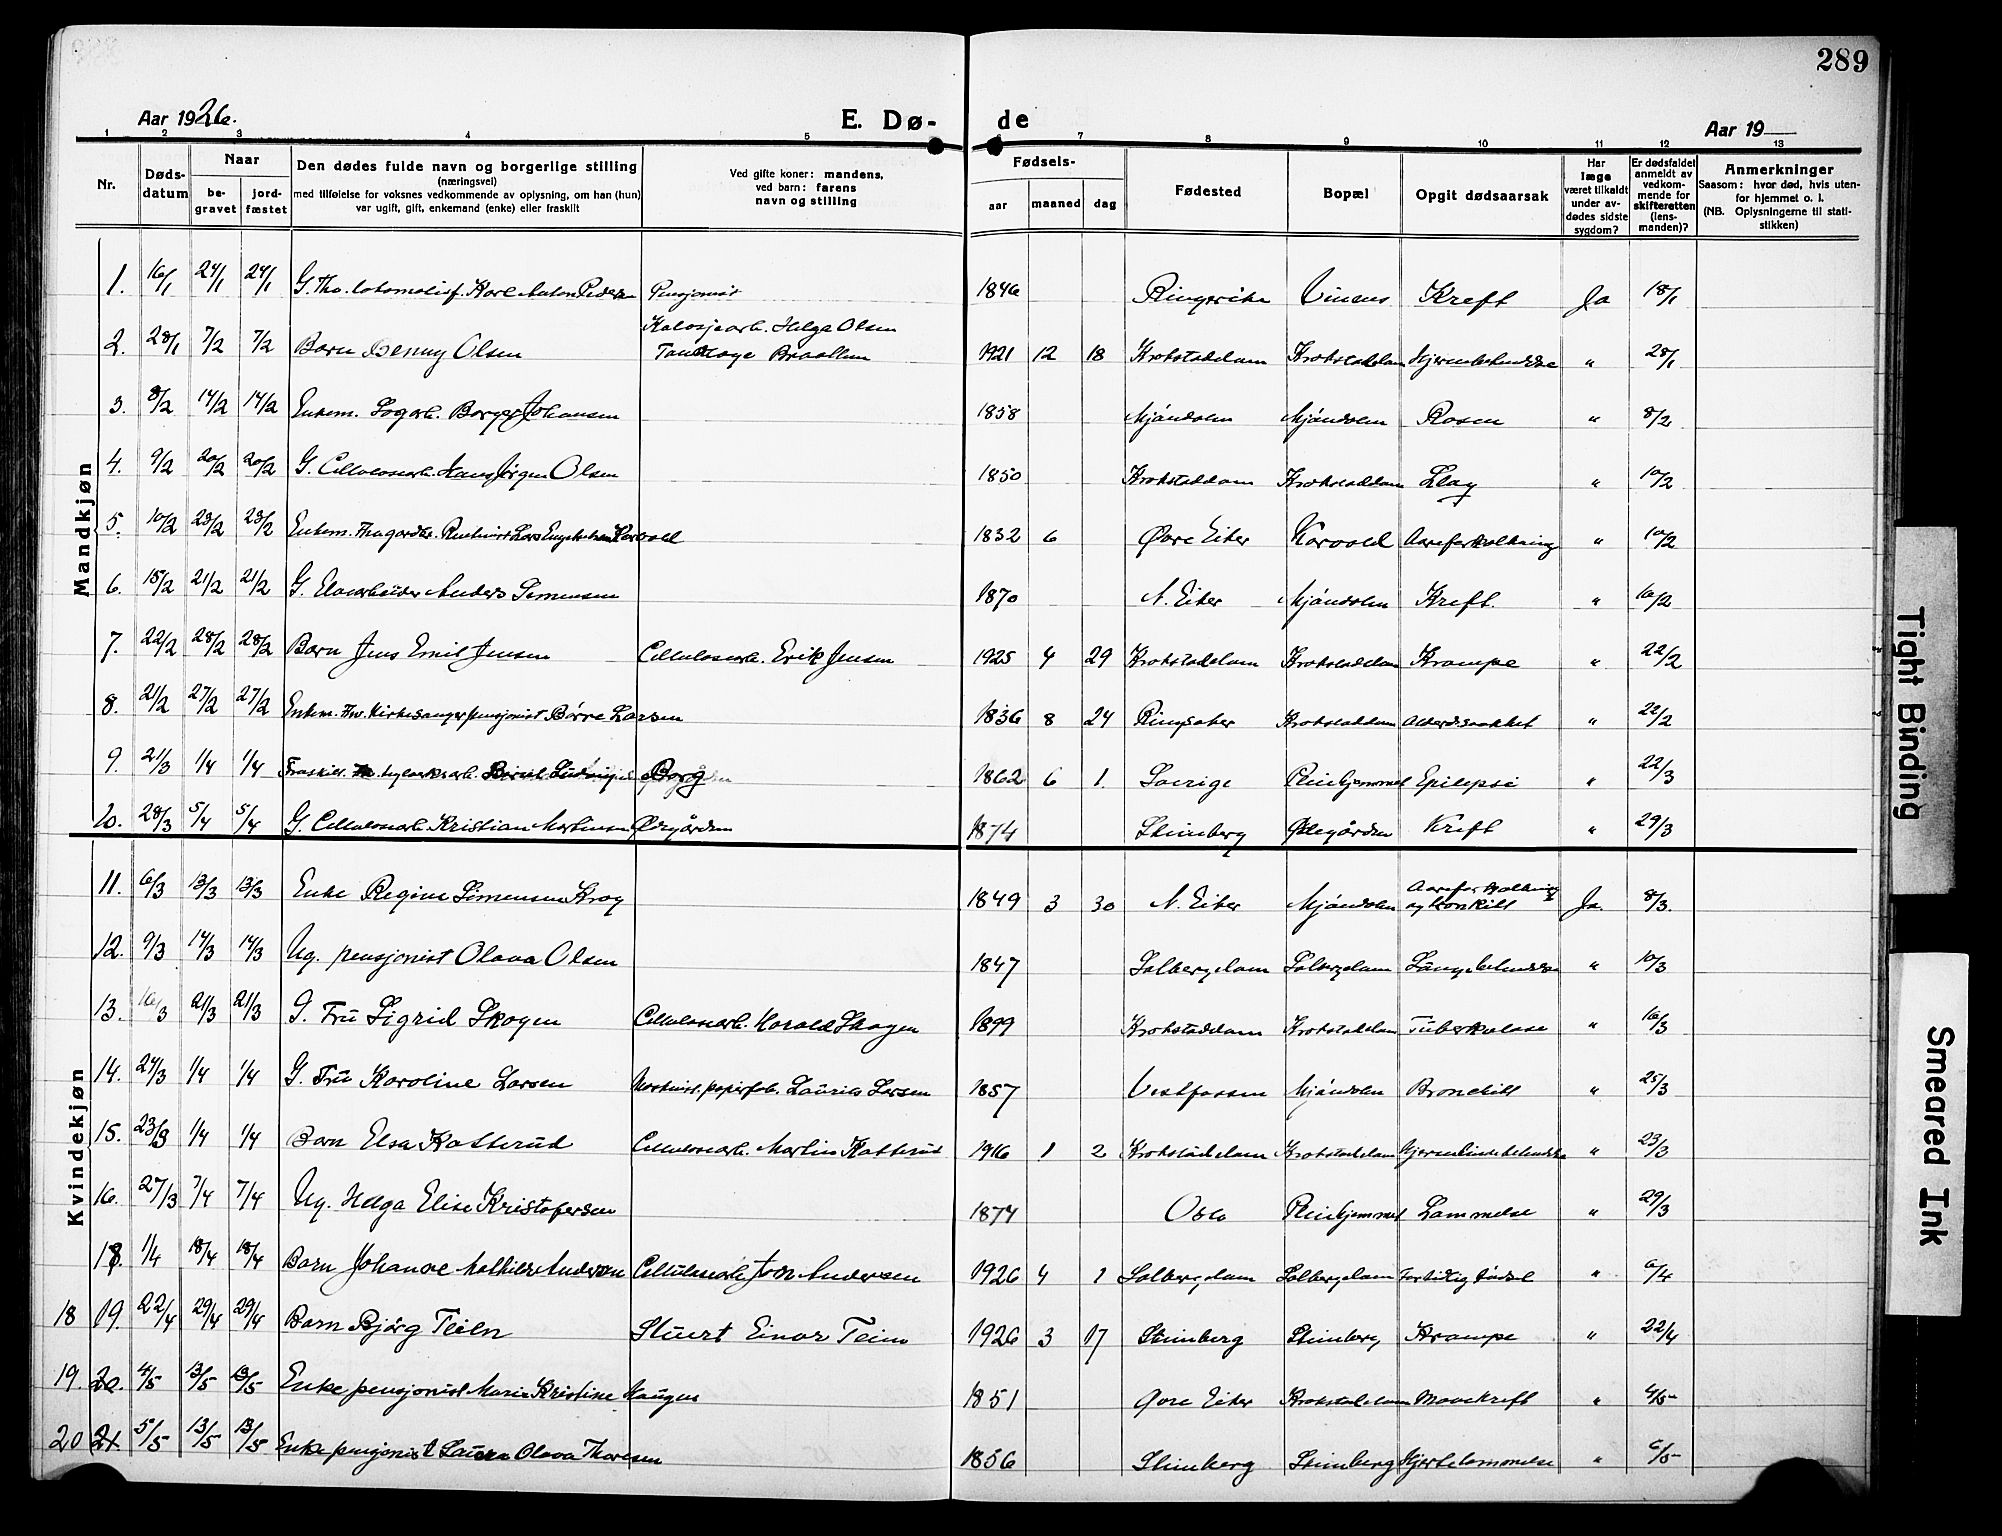 289
Aar 1926.
E. Dø-
de
Aar 19
1 2 3 4 5 6 7 8 9 10 11 12 13
Nr.
Døds-
datum
Naar
be-
gravet
jord-
fæstet
Den dødes fulde navn og borgerlige stilling
(næringsvei)
med tilføielse for voksnes vedkommende av oplysning, om han (hun)
var ugift, gift, enkemand (enke) eller fraskilt
Ved gifte koner: mandens,
ved barn: farens
navn og stilling
Fødsels-
aar maaned dag
Fødested
Bopæl
Opgit dødsaarsak
Har
læge
været tilkaldt
under av-
dødes sidste
sygdom?
Er dødsfaldet
anmeldt av
vedkom-
mende for
skifteretten
(lens-
manden)?
Anmerkninger
Saasom: hvor død, hvis uten-
for hjemmet o. l.
(NB. Oplysningerne til stati-
stikken)
Mandkjøn
1. 16/1 24/1 24/1 G. Fhv. lokomotivf. Karl Anton Pedersen Pensjonist 1846 Ringerike Vinens Kreft Ja 18/1
2. 28/1 7/2 7/2 Barn Benny Olsen Kalosjearb. Helga Olsen 1921 12 18 Krokstadelven Krokstadelven 〃 28/1
3. 8/2 14/2 14/2 Enkem. Sagarb. Borger Johansen 1858 Mjøndalen Mjøndalen Rosen 〃 8/2
4. 9/2 20/2 20/2 G. Cellulosearb. Hans Jørgen Olsen 1850 Krokstadelven Krokstadelven Slag 〃 10/2
5. 10/2 23/2 23/2 Enkem. Fhv. gardbr. Lars Engebretsen Horvold 1832 6 Øvre Eiker Horvold Aareforkalkning 〃 10/2
6. 15/2 21/2 21/2 G. Elvearbeider Anders Simensen 1870 N. Eiker Mjøndalen Kreft. 〃 16/2
7. 22/2 28/2 28/2 Barn Jens Emil Jensen Cellulosearb. Erik Jensen 1925 4 29 Krokstadelven Krokstadelven Krampe 〃 22/2
8. 21/2 27/2 27/2 Enkem. Fhv. Kirkesanger pensjonist Børre Larsen 1836 8 24 Ringsaker Krokstadelven Alderdomssvakhet 〃 22/2
9. 21/3 1/4 1/4 Fraskilt Borg 1862 6 1. Sverige Pleiehjemmet Epilepsi 〃 22/3
10. 28/3 5/4 5/4 G. Cellulosearb. Kristian Martinsen Ødegården 1874 Stenberg Ødegården Kreft 〃 29/3
Kvindekjøn
11. 6/3 13/3 13/3 Enke Regine Simensen Krog 1849 3 30 N. Eiker Mjøndalen Aareforkalkning
og bronkitt Ja. 8/3.
12. 9/3 14/3 14/3 Ug. pensjonist Olava Olsen 1847 Solbergelven Solbergelven Lungebetendelse 〃 10/3
13. 16/3 21/3 21/3 G. Fru Sigrid Skogen Cellulosearb. Harald Skogen 1899 Krokstadelven Krokstadelven Tuberkulose 〃 16/3
14. 24/3 1/4 1/4 G. Fru Karoline Larsen Maskinist papirfab. Laurits Larsen 1857 Vestfossen Mjøndalen Bronkitt 〃 25/3
15. 23/3 1/4 1/4 Barn Elsa Katterud Cellulosearb. Martin Katterud 1916 1 2 Krokstadelven Krokstadelven Hjernehindebetendelse 〃 23/3
16. 27/3 7/4 7/4 Ug. Helga Elise Kristofersen 1874 Oslo Pleiehjemmet Lammelse 〃 29/3
17. 1/4 18/4 18/4 Barn Johanne Mathilde Andersen Cellulosearb. Jon Andersen 1926 4 1 Solbergelven Solbergelven For tidlig fødsel 〃 6/4
18 19. 22/4 29/4 29/4 Barn Bjørg Teien Stuert Einar Teien 1926 3 17 Stenberg Stenberg Krampe 〃 22/4
19. 20. 4/5 13/5 13/5 Enke pensjonist Marie Kristine Haugen 1851 Øvre Eiker Krokstadelven Mavekreft 〃 4/5
20 21 5/5 13/5 13/5 Enke pensjonist Laura Olava Thoresen 1856 Stenberg Stenberg Hjertelammelse 〃 6/5
Tight Binding
Smeared Ink